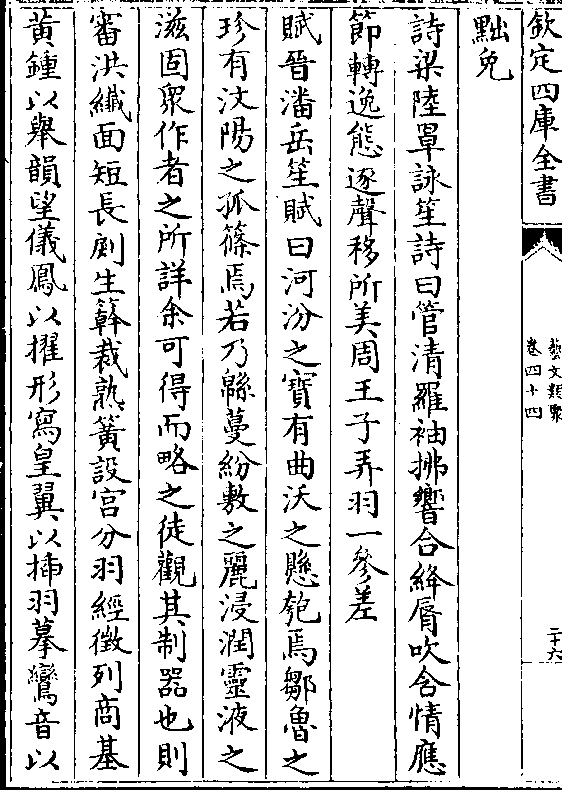 欽定四庫全書
藝文類聚
卷四十四
二十六
黜免
詩梁陸罩詠笙詩曰管清羅袖拂響合絳脣吹含情應
節轉逸態逐聲移所美周王子弄羽一參差
賦晉潘岳笙賦曰河汾之寶有曲沃之懸匏焉鄒魯之
珍有汶陽之孤篠焉若乃緜蔓紛敷之麗浸潤靈液之
滋固衆作者之所詳余可得而略之徒觀其制器也則
審洪纎面短長㓷生簳裁熟簧設宫分羽經徵列商基
黄鍾以舉韻望儀鳳以擢形寫皇翼以插羽摹鸞音以